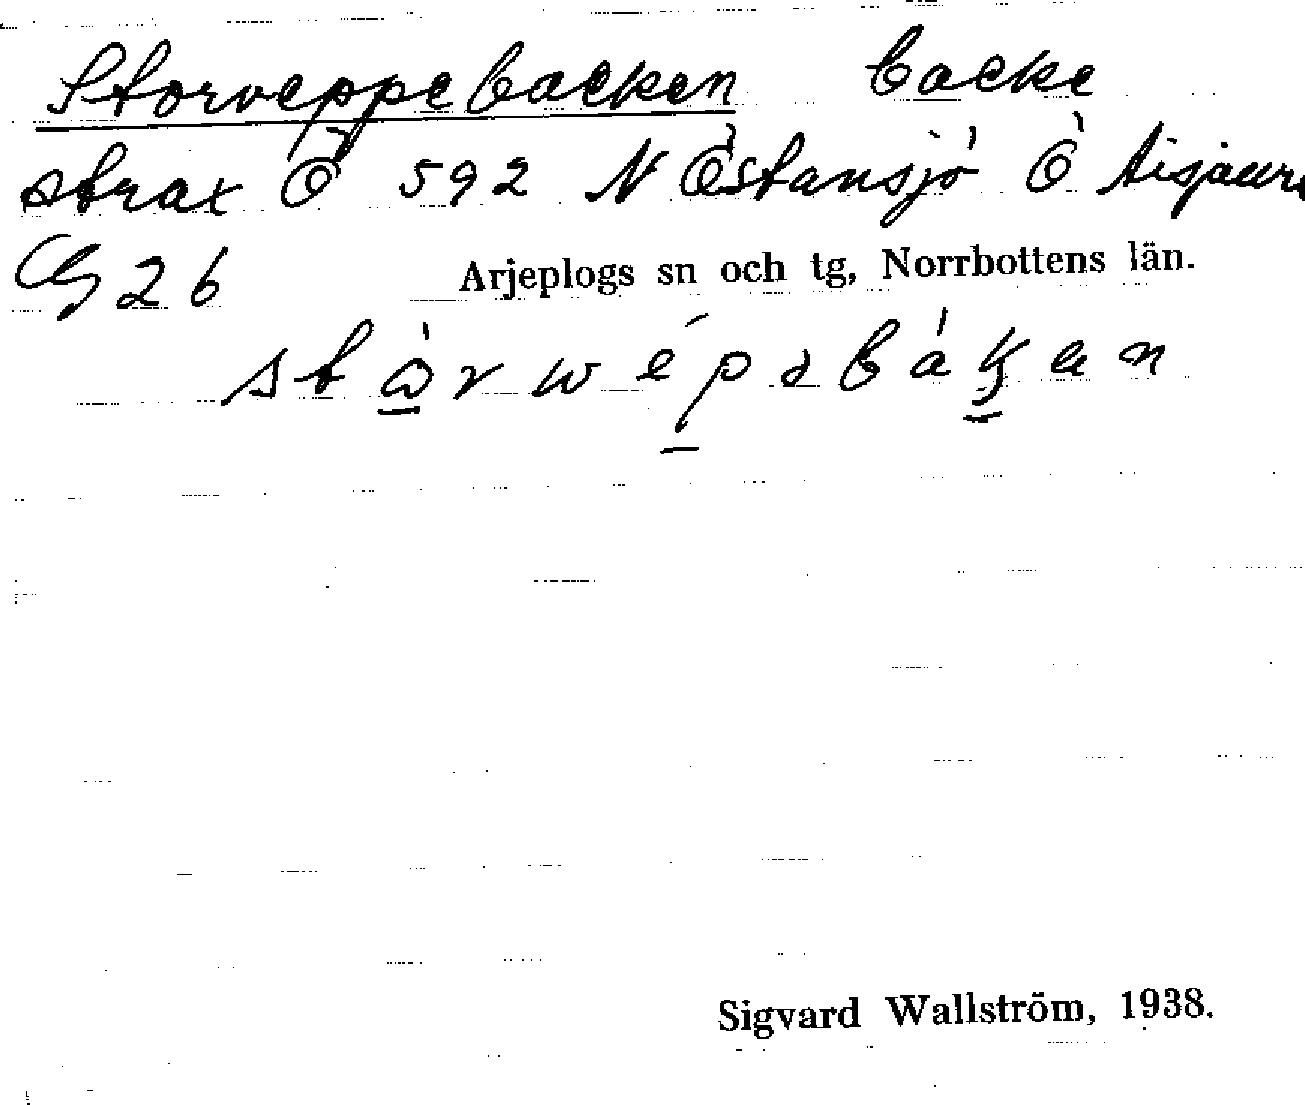 Storveppebacken backe
strax Ö 592 N Östansjö Ö Aisjaure
G 26 Arjeplogs sn och tg, Norrbottens län.
Sigvard Wallström, 1938.